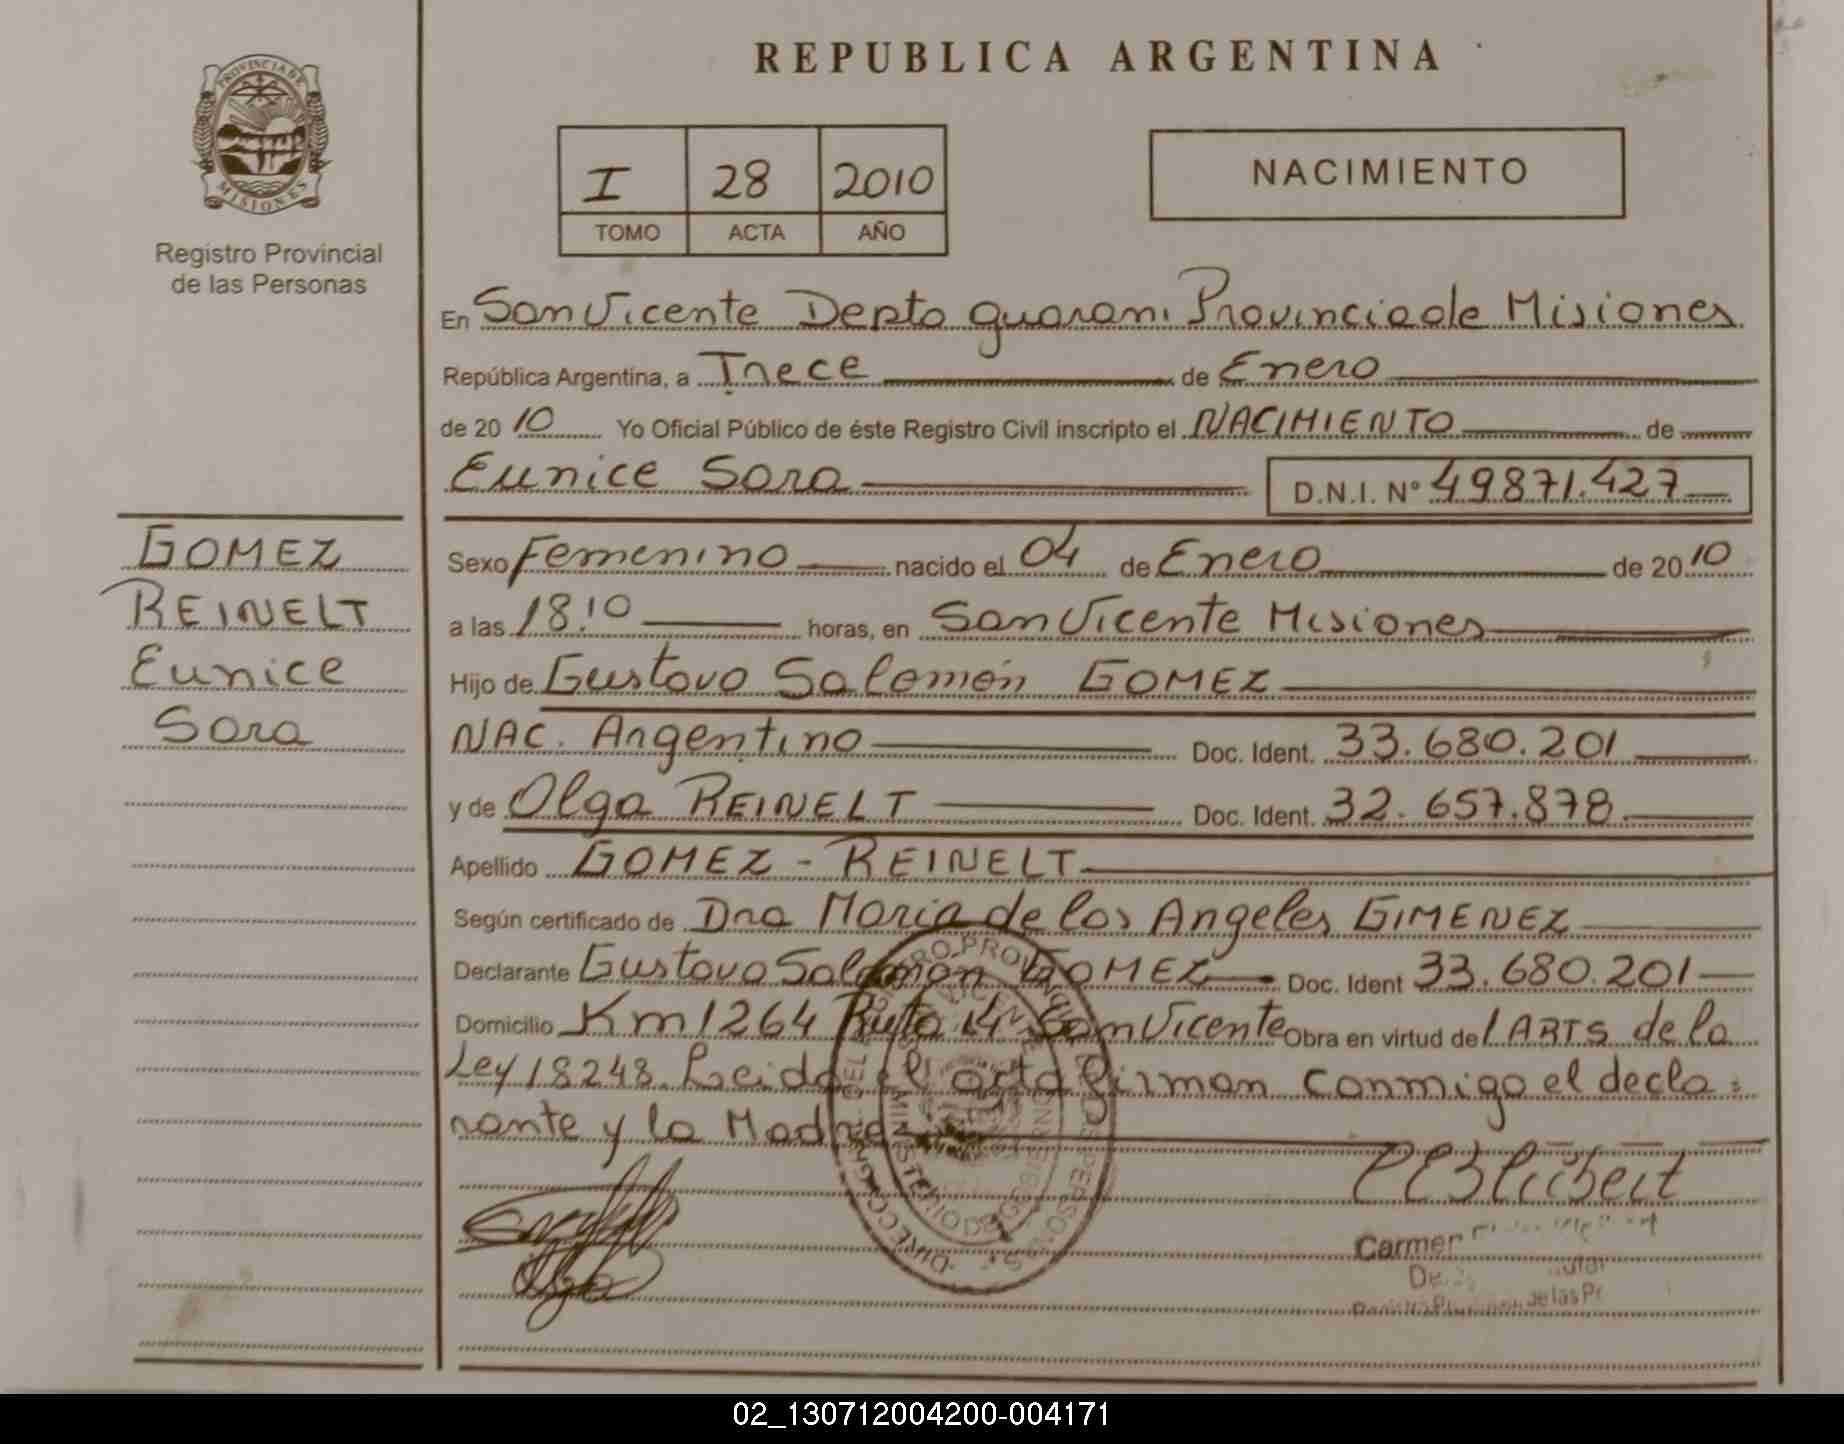 REPUBLICA ARGENTINA
PROVINCIA DE
MISIONES
Registro Provincial
de las Personas
I 28 2010
TOMO ACTA AÑO
NACIMIENTO
En San Vicente Depto Guarani Provincia de Misiones
República Argentina, a Trece de Enero
de 2010 Yo Oficial Público de éste Registro Civil inscripto el NACIMIENTO de
Eunice Sara D.N.I. Nº 49871.427
GOMEZ
REINELT
Eunice
Sara
Sexo Femenino nacido el 04 de Enero de 2010
a las 18:10 horas, en San Vicente Misiones
Hijo de Gustavo Salomón GOMEZ
NAC. Argentino Doc. Ident. 33.680.201
y de Olga REINELT Doc. Ident. 32.657.878
Apellido GOMEZ - REINELT
Según certificado de Dra Maria de los Angeles GIMENEZ
Declarante Gustavo Salomon GOMEZ Doc. Ident 33.680.201
Domicilio Km 1264 Ruta 14 San Vicente Obra en virtud de l ARTS de la
Ley 18248. Leida el acta firman conmigo el decla=
rante y la Madre
Olga
Carmen
02_130712004200-004171